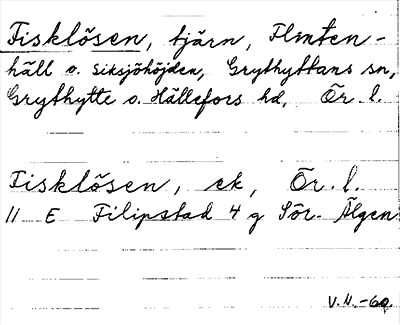 Fisklösen, tjärn, Flinten-
häll o. Siksjöhöjden, Grythyttans sn,
Grythytte o. Hällefors hd, Ör. l.
Fisklösen, ek, Ör. l.
11 E Filipstad 4 g Sör. Älgen
V.N.-60.